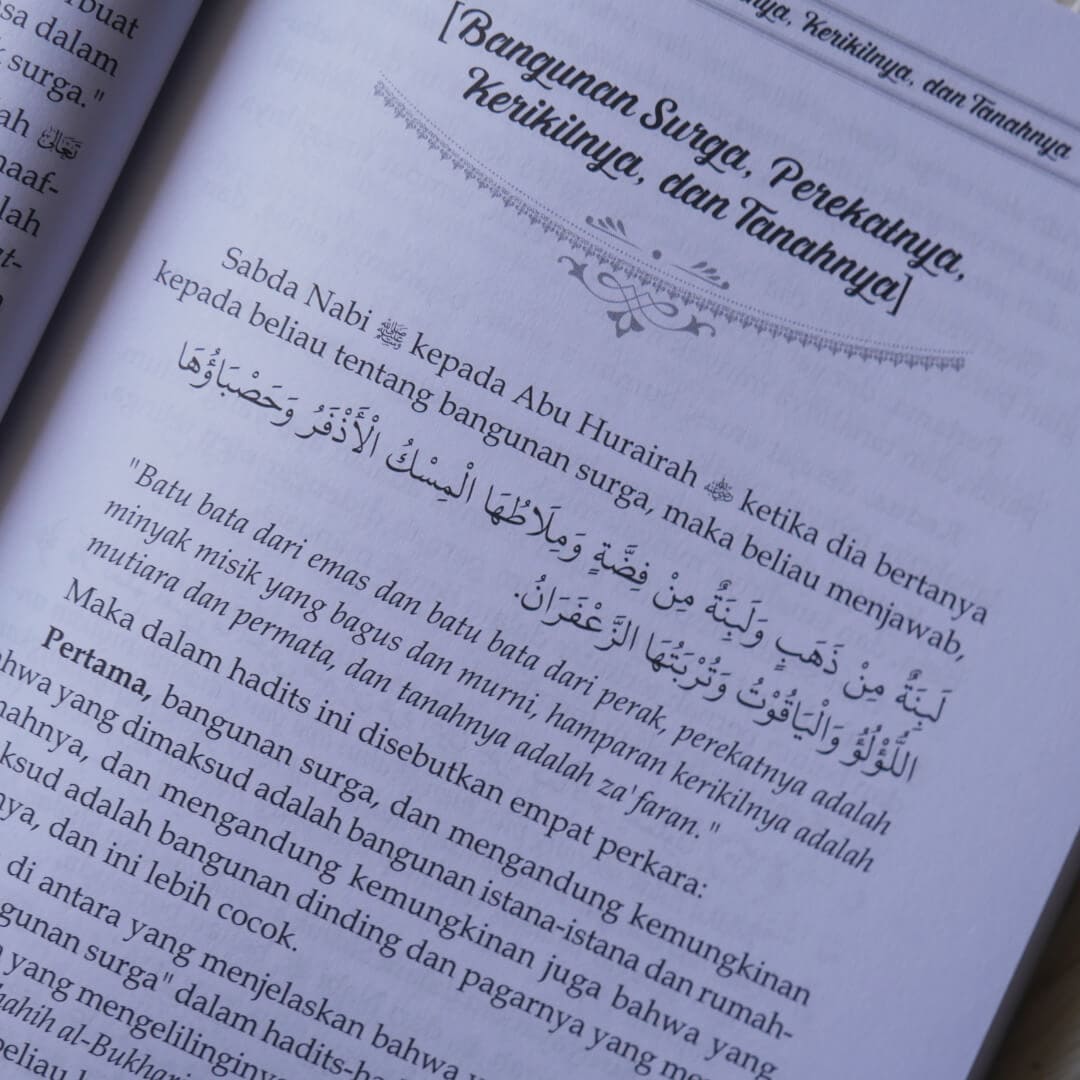 rbuat
sa dalam
surga."
ah تَعَالَى
naaf-
lah
at-
nya, Kerikilnya, dan Tanahnya
[Bangunan Surga, Perekatnya,
Kerikilnya, dan Tanahnya]
Sabda Nabi ﷺ kepada Abu Hurairah ketika dia bertanya
kepada beliau tentang bangunan surga, maka beliau menjawab,
لَبِنَةٌ مِنْ ذَهَبٍ وَلَبِنَةٌ مِنْ فِضَّةٍ وَمِلَاطُهَا الْمِسْكُ الْأَذْفَرُ وَحَصْبَاؤُهَا
اللُّؤْلُؤُ وَالْيَاقُوْتُ وَتُرْبَتُهَا الزَّعْفَرَانُ.
"Batu bata dari emas dan batu bata dari perak, perekatnya adalah
minyak misik yang bagus dan murni, hamparan kerikilnya adalah
mutiara dan permata, dan tanahnya adalah za'faran."
Maka dalam hadits ini disebutkan empat perkara:
Pertama, bangunan surga, dan mengandung kemungkinan
ahwa yang dimaksud adalah bangunan istana-istana dan rumah-
mahnya, dan mengandung kemungkinan juga bahwa yang
aksud adalah bangunan dinding dan pagarnya yang me
nya, dan ini lebih cocok.
di antara yang menjelaskan bahwa y
gunan surga" dalam hadits-ha
yang mengelilinginya
hahih al-Bukhari
beliau b